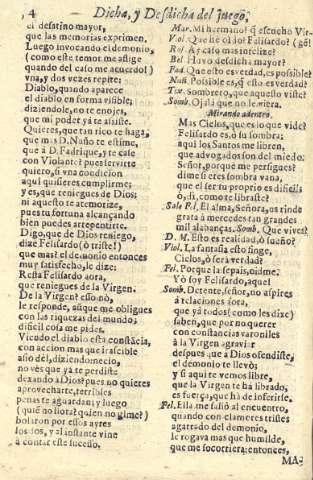 4 Dicha, y Desdicha del juego,
el destino mayor,
que las memorias exprimen.
Luego invocando el demonio,
(como este temor me aflige
quando del caso me acuerdo!)
vna, y dos vezes repite:
Diablo, quando aparece
el diablo en forma visible;
diziendole, no te enojes,
que mi poder ya te assiste.
Quieres, que tan rico te haga,
que mas D. Nuño te estime,
que à D. Fadrique, y te case
con Violante? pues servirte
quiero, si vna condicion
aqui quisieres cumplirme;
y es, que reniegues de Dios:
ni aquesto te atemorize,
pues tu fortuna alcançando
bien puedes arrepentirte.
Digo, que de Dios reniego,
dize Felisardo (ò triste!)
que mas? el demonio entonces
muy satisfecho, le dize:
Resta Felisardo aora,
que reniegues de la Virgen.
De la Virgen? esso nò,
le responde, aunque me obligues
con las riquezas del mundo;
dificil cosa me pides.
Viendo el diablo esta constãcia,
con accion mas que irascible
asiò dèl, diziendo necio,
no vès que ya te perdiste
dexando à Dios? pues no quieres
aprovecharte, terribles
penas te aguardan; y luego
(quiẽ no llora? quien no gime?)
bolaron por essos ayres
los dos, y al instante vine
à contar este sucesso.
Mar. Mi hermano! q̃ escucho Vir-
Viol. Que hè oìdo! Felisardo? (gẽ!
Rol. Ay caso mas infelize?
Bel. Huvo desdicha mayor?
Fad. Que esto es verdad, es possible?
Nuñ. Possible es, q̃ esto es verdad?
Tix. Sombrero, que aquesto viste?
Somb. Ojalà que no le viera.
Mirando adentro.
Mas Cielos, que es lo que vide?
Felisardo es, ò su sombra;
aqui los Santos me libren,
que advogados son del miedo.
Señor, porque me persigues?
dime si eres sombra vana,
que el ser tu proprio es dificil:
ò, di, como te libraste?
Sale Fel. El alma, Señora, os rinde
grata à mercedes tan grandes
mil alabanças. Somb. Que vives?
D. M. Esto es realidad, ò sueño?
Viol. La fantasia esto finge,
Cielos, ò serà verdad?
Fel. Porque la sepais, oidme.
Yo soy Felisardo, aquel
Somb. Detente, señor, no aspires
à relaciones aora,
que yà todos (como les dixe)
saben, que por no querer
con constancias varoniles
à la Virgen agraviar
despues que à Dios ofendiste,
el demonio te llevò;
y si aqui te vemos libre,
que la Virgen te hà librado,
es fuerça, que hà de inferirse.
Fel. Ella me saliò al encuentro,
quando con clamores tristes
agarrado del demonio,
le rogava mas que humilde,
que me socorriera; entonces,
MA-